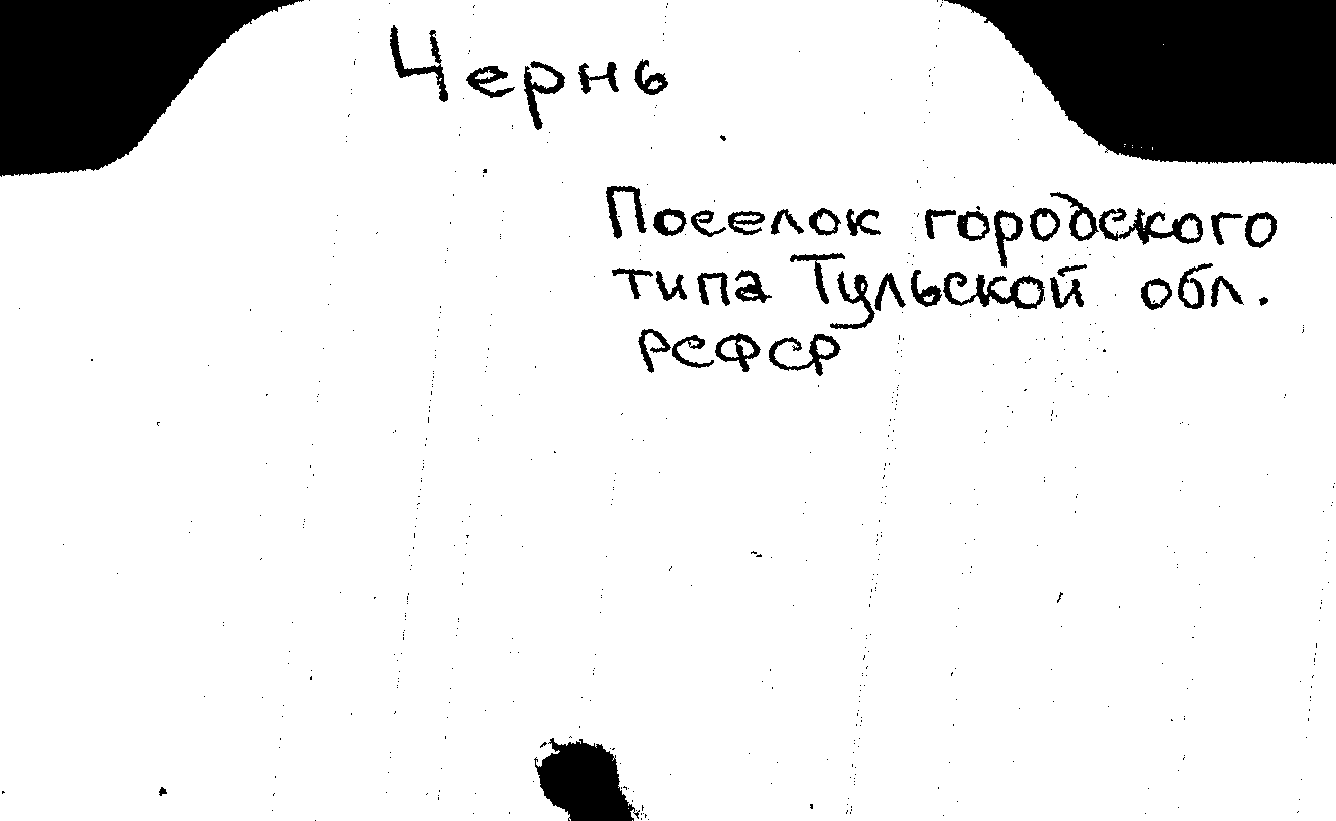 Чернь
Поселок городского
типа Тульской обл.
РСФСР